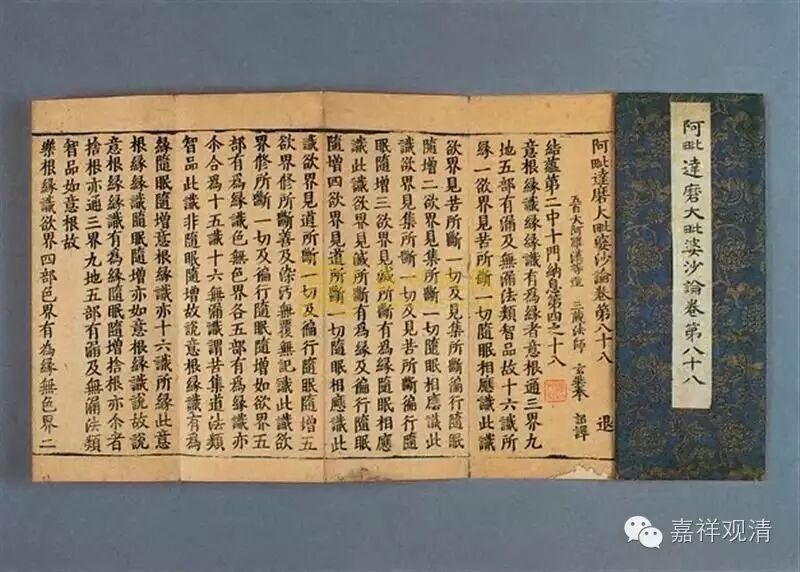 阿毗達磨大毗婆沙論卷第八十八
阿毗達磨大毗婆沙論卷第八十八 退
五百大阿羅漢等造 三藏法師 玄奘奉 詔譯
結蘊第二中十門納息第四之十八
意根緣識緣緣識有為緣者意根通三界九
地五部有漏及無漏法類智品故十六識所
緣一欲界見苦所斷一切隨眠相應識此識
欲界見苦所斷一切及見集所斷徧行隨眠
隨增二欲界見集所斷一切隨眠相應識此
識欲界見集所斷一切及見苦所斷徧行隨
眠隨增三欲界見滅所斷一切隨眠相應
識此識欲界見滅所斷有為緣及徧行隨眠
隨增四欲界見道所斷一切隨眠相應識此
識欲界見道所斷一切及徧行隨眠隨增五
欲界修所斷善及染污無覆無記識此識欲
界修所斷一切及徧行隨眠隨增如欲界五
部有為緣識色無色界各五部有為緣識亦
尒合為十五識十六無漏識謂苦集道法類
智品此識非隨眠隨增故說意根緣識有為
緣隨眠隨增意根緣緣識亦十六識所緣此意
根緣緣識隨眠隨增亦如意根緣識說故說
意根緣緣識有為緣隨眠隨增捨根亦尒者
捨根亦通三界九地五部有漏及無漏法類
智品如意根故
樂根緣識欲界四部色界有為緣無色界二
嘉祥观清